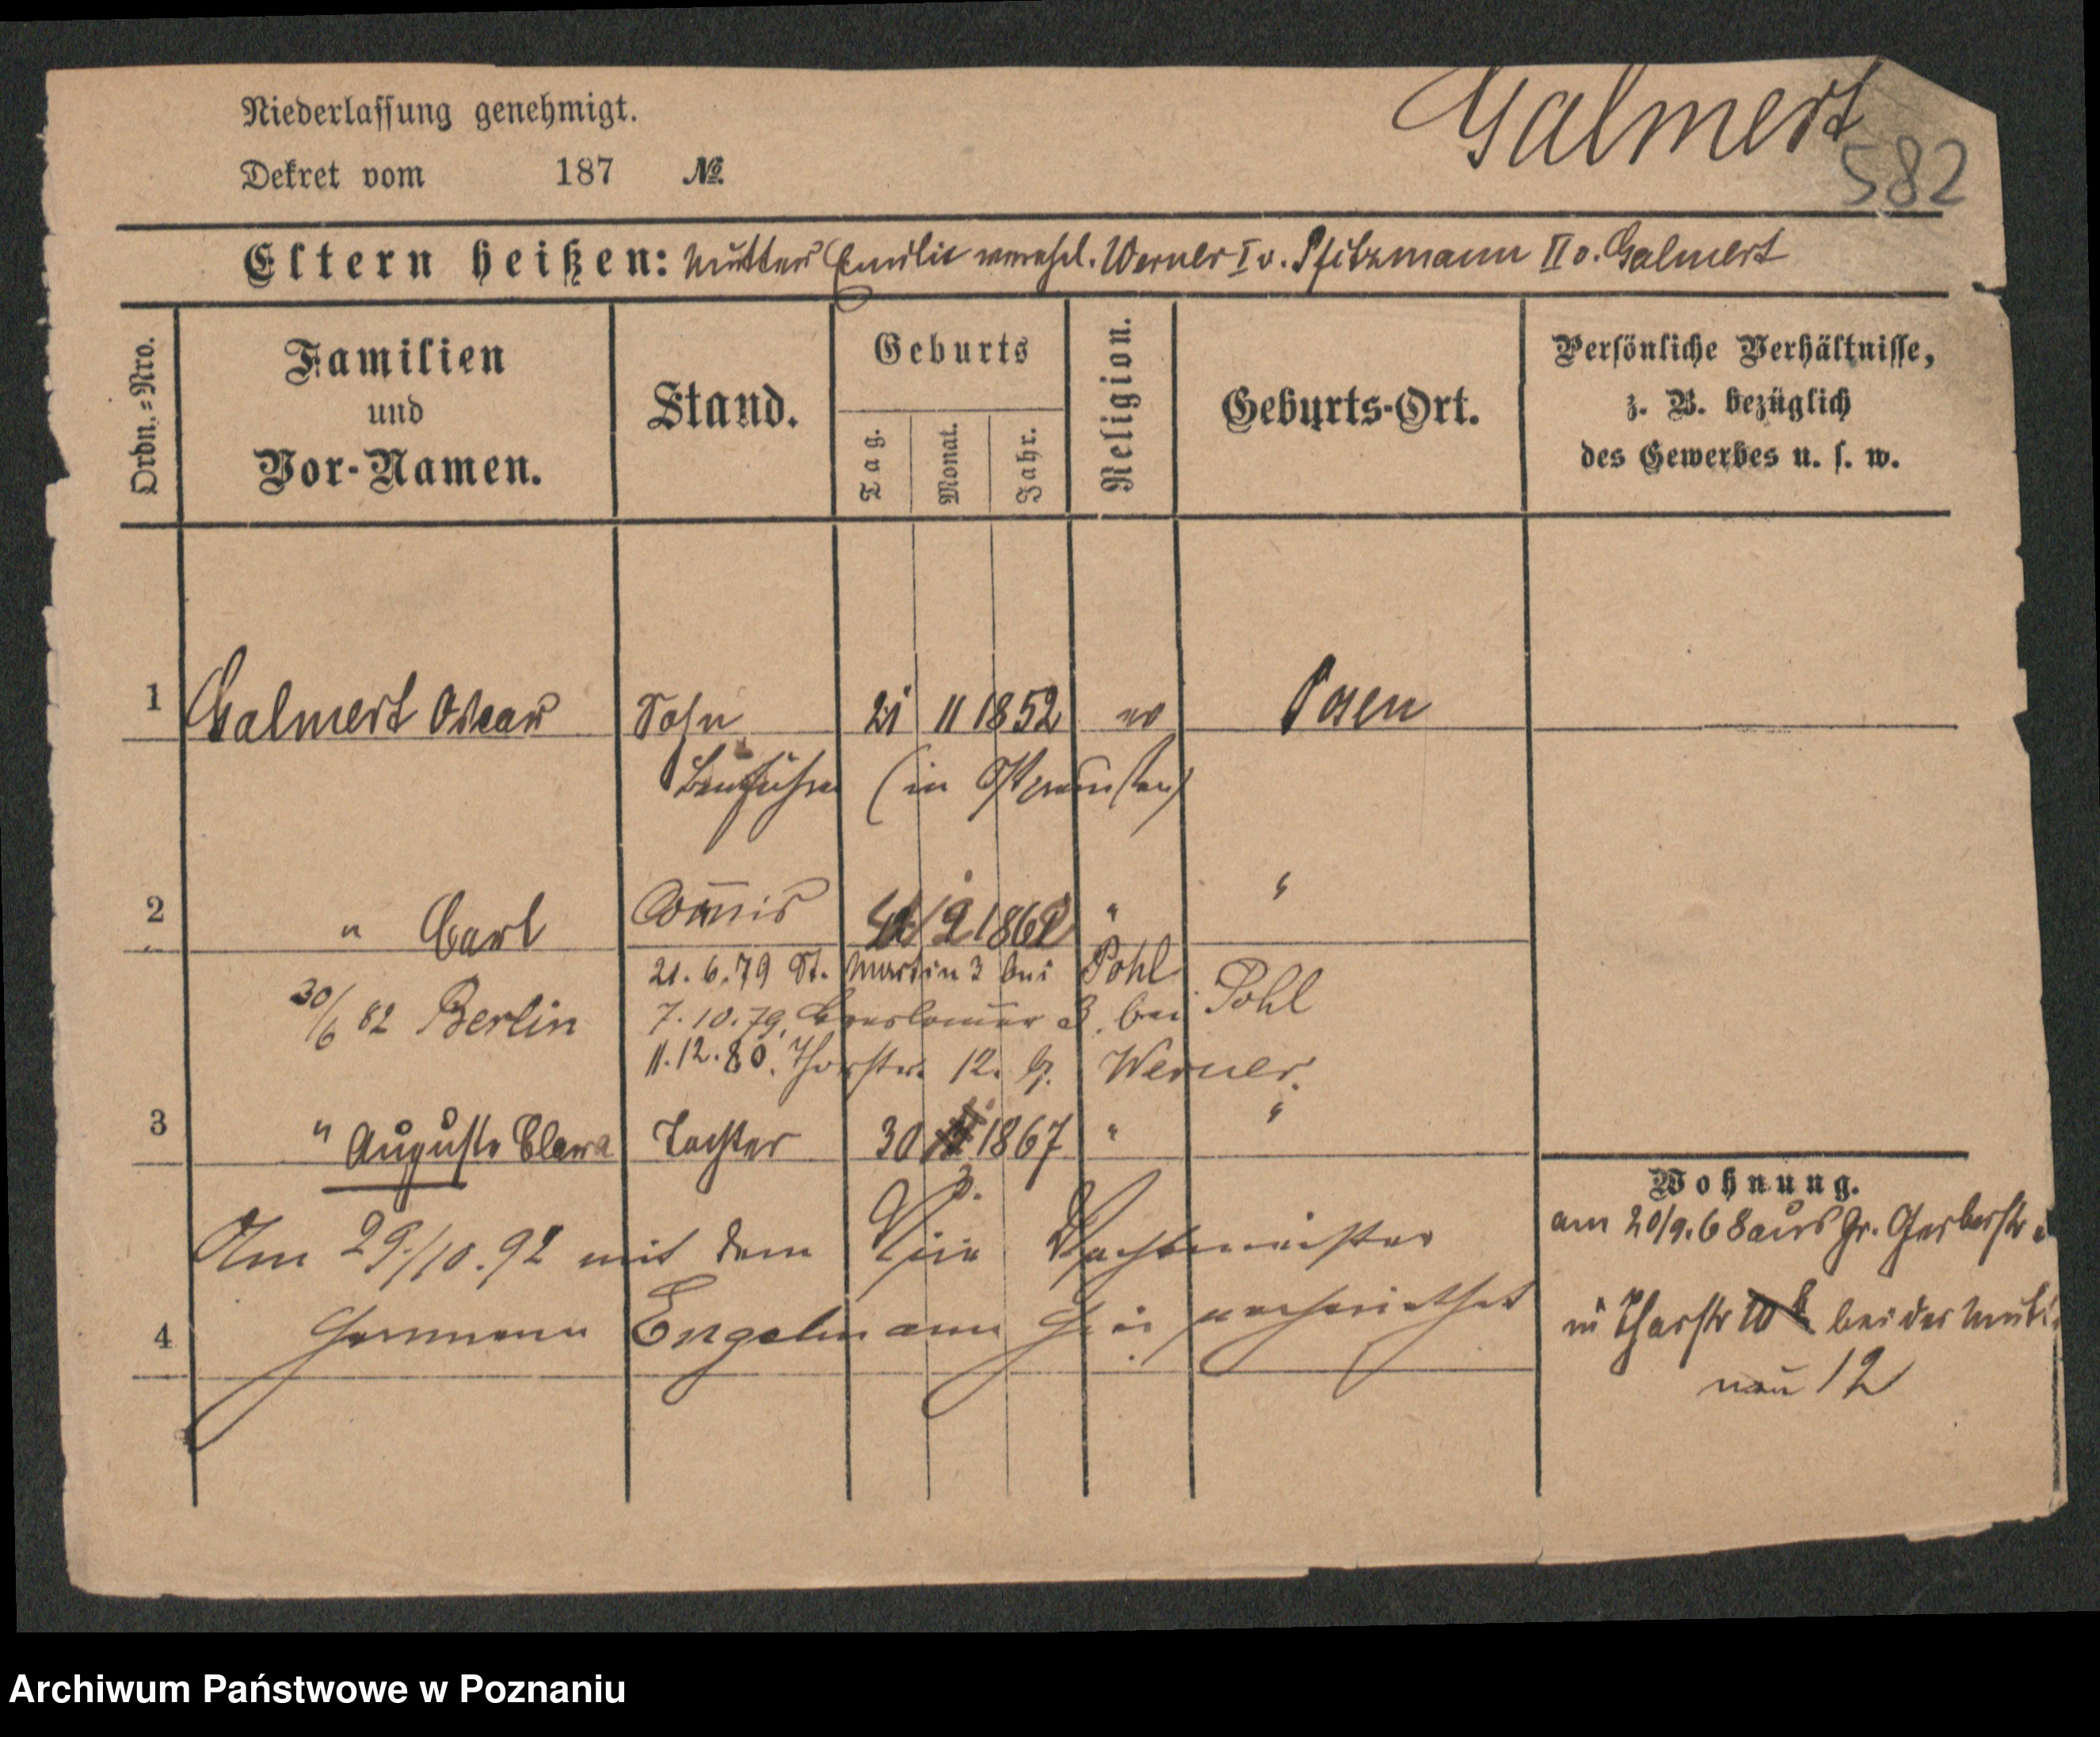 Niederlassung genehmigt.
Galmert
582
Dekret vom 187 №
Eltern heißen: Mutter Emilie verehel. Werner I v. Pfitzmann II v. Galmert
Ordn.=Nro.
Familien und Vor-Namen.
Stand.
Geburts
Tag. Monat. Jahr.
Religion.
Geburts-Ort.
Persönliche Verhältnisse,
z. B. bezüglich
des Gewerbes u. s. w.
1 Galmert Oskar Sohn 21 11 1852 ev Posen
(in
2 " Carl Com̅is 9 186 " "
21.6.79 St. Martin 3 bei Pohl
30/6 82 Berlin 7.10.79. Breslauer 3. bei Pohl
11.12.80. Thorstr. 12. b. Werner.
3 " Auguste Clara Tochter 30 1867 " "
3.
Wohnung.
am 20/9.68 aus gr. Gerberstr
Am 29./10.92 mit dem Vice Wachtmeister
in Thorstr bei der Mutt
4 Hermann Engelmann hier verheirathet
neu 12
Archiwum Państwowe w Poznaniu